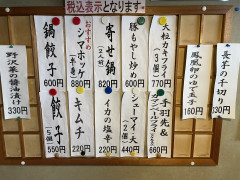 税込表示となります。
長芋の千切り
330円
鳳凰卵のゆで玉子
160円
大粒カキフライ
(3ヶ)
770円
豚もやし炒め
600円
寄せ鍋
(一人前)
820円
おすすめ
シマホッケ
880円
鍋餃子
600円
野沢菜の醤油漬け
330円
手羽先&
660円
シューマイ
(2個)
440円
イカの塩辛
220円
キムチ
220円
餃子
(5個)
550円